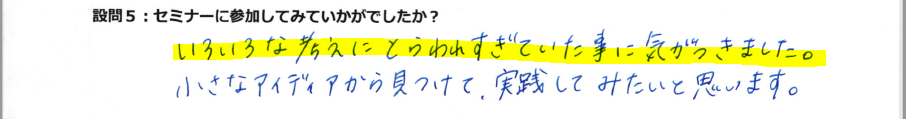 設問５：セミナーに参加してみていかがでしたか？
いろいろな考えにとらわれすぎていた事に気がつきました。
小さなアイディアから見つけて、実践してみたいと思います。